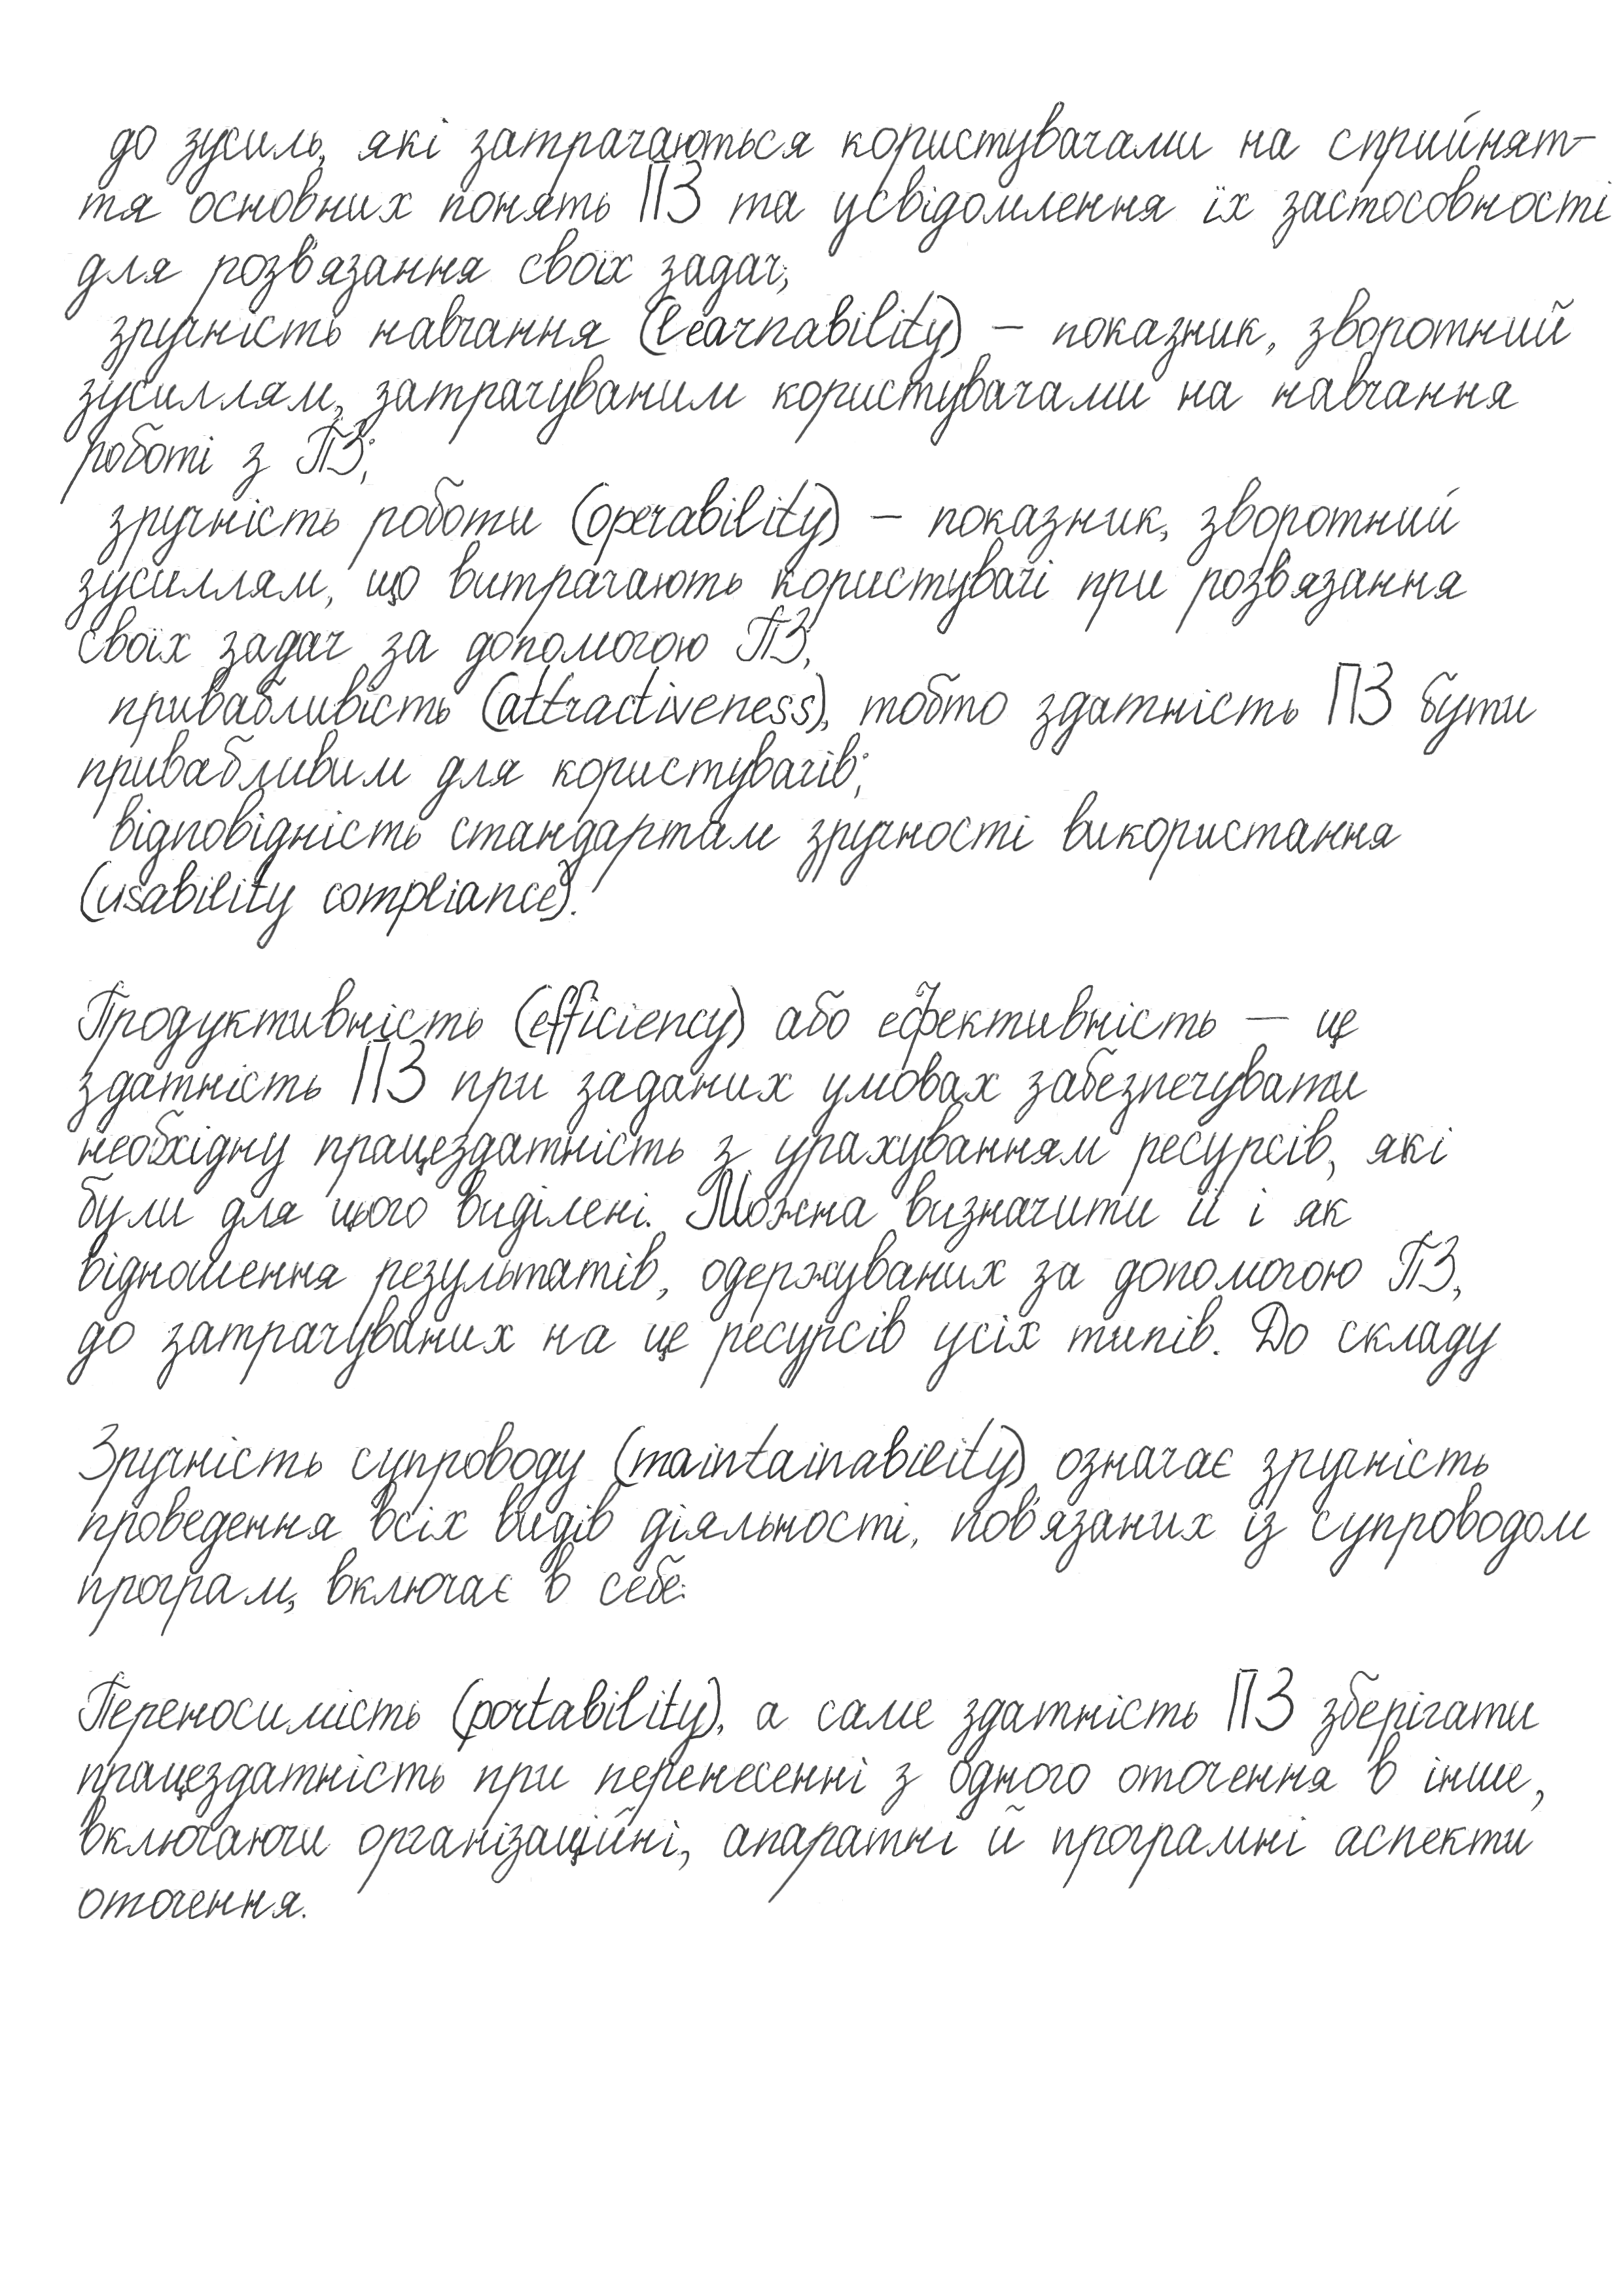 до зусиль, які затрачаються користувачами на сприйнят-
тя основних понять ПЗ та усвідомлення їх застосовності
для розв'язання своїх задач;
зручність навчання (learnability) – показник, зворотний
зусиллям, затрачуваним користувачами на навчання
роботі з ПЗ;
зручність роботи (operability) – показник, зворотний
зусиллям, що витрачають користувачі при розв'язання
своїх задач за допомогою ПЗ;
привабливість (attractiveness), тобто здатність ПЗ бути
привабливим для користувачів;
відповідність стандартам зручності використання
(usability compliance).
Продуктивність (efficiency) або ефективність – це
здатність ПЗ при заданих умовах забезпечувати
необхідну працездатність з урахуванням ресурсів, які
були для цього виділені. Можна визначити її і як
відношення результатів, одержуваних за допомогою ПЗ,
до затрачуваних на це ресурсів усіх типів. До складу
Зручність супроводу (maintainability) означає зручність
проведення всіх видів діяльності, пов'язаних із супроводом
програм, включає в себе:
Переносимість (portability), а саме здатність ПЗ зберігати
працездатність при перенесенні з одного оточення в інше,
включаючи організаційні, апаратні й програмні аспекти
оточення.